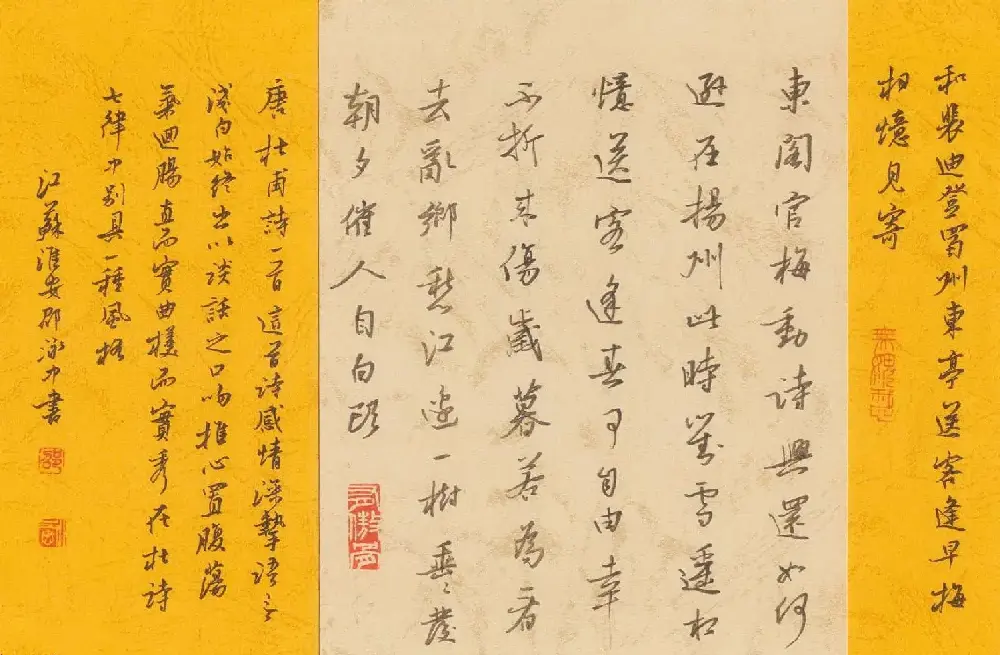 和裴迪登蜀州東亭送客逢早梅
相憶見寄
東閣官梅動詩興還如何
遜在揚州此時對雪遙相
憶送客逢春可自由幸
不折來傷歲暮若為看
去亂鄉愁江邊一樹垂〻發
朝夕催人自白頭
唐杜甫詩一首這首詩感情深摯語言
淺白始終出以談話之口吻推心置腹蕩
氣迴腸直而實曲樸而實秀在杜詩
七律中別具一種風格
江蘇淮安邵泳中書